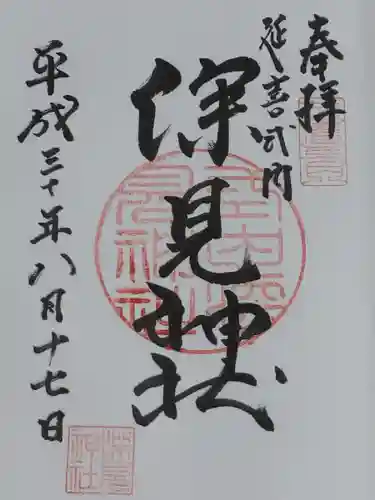 奉拝
延喜式内
深見神社
平成三十年八月十七日